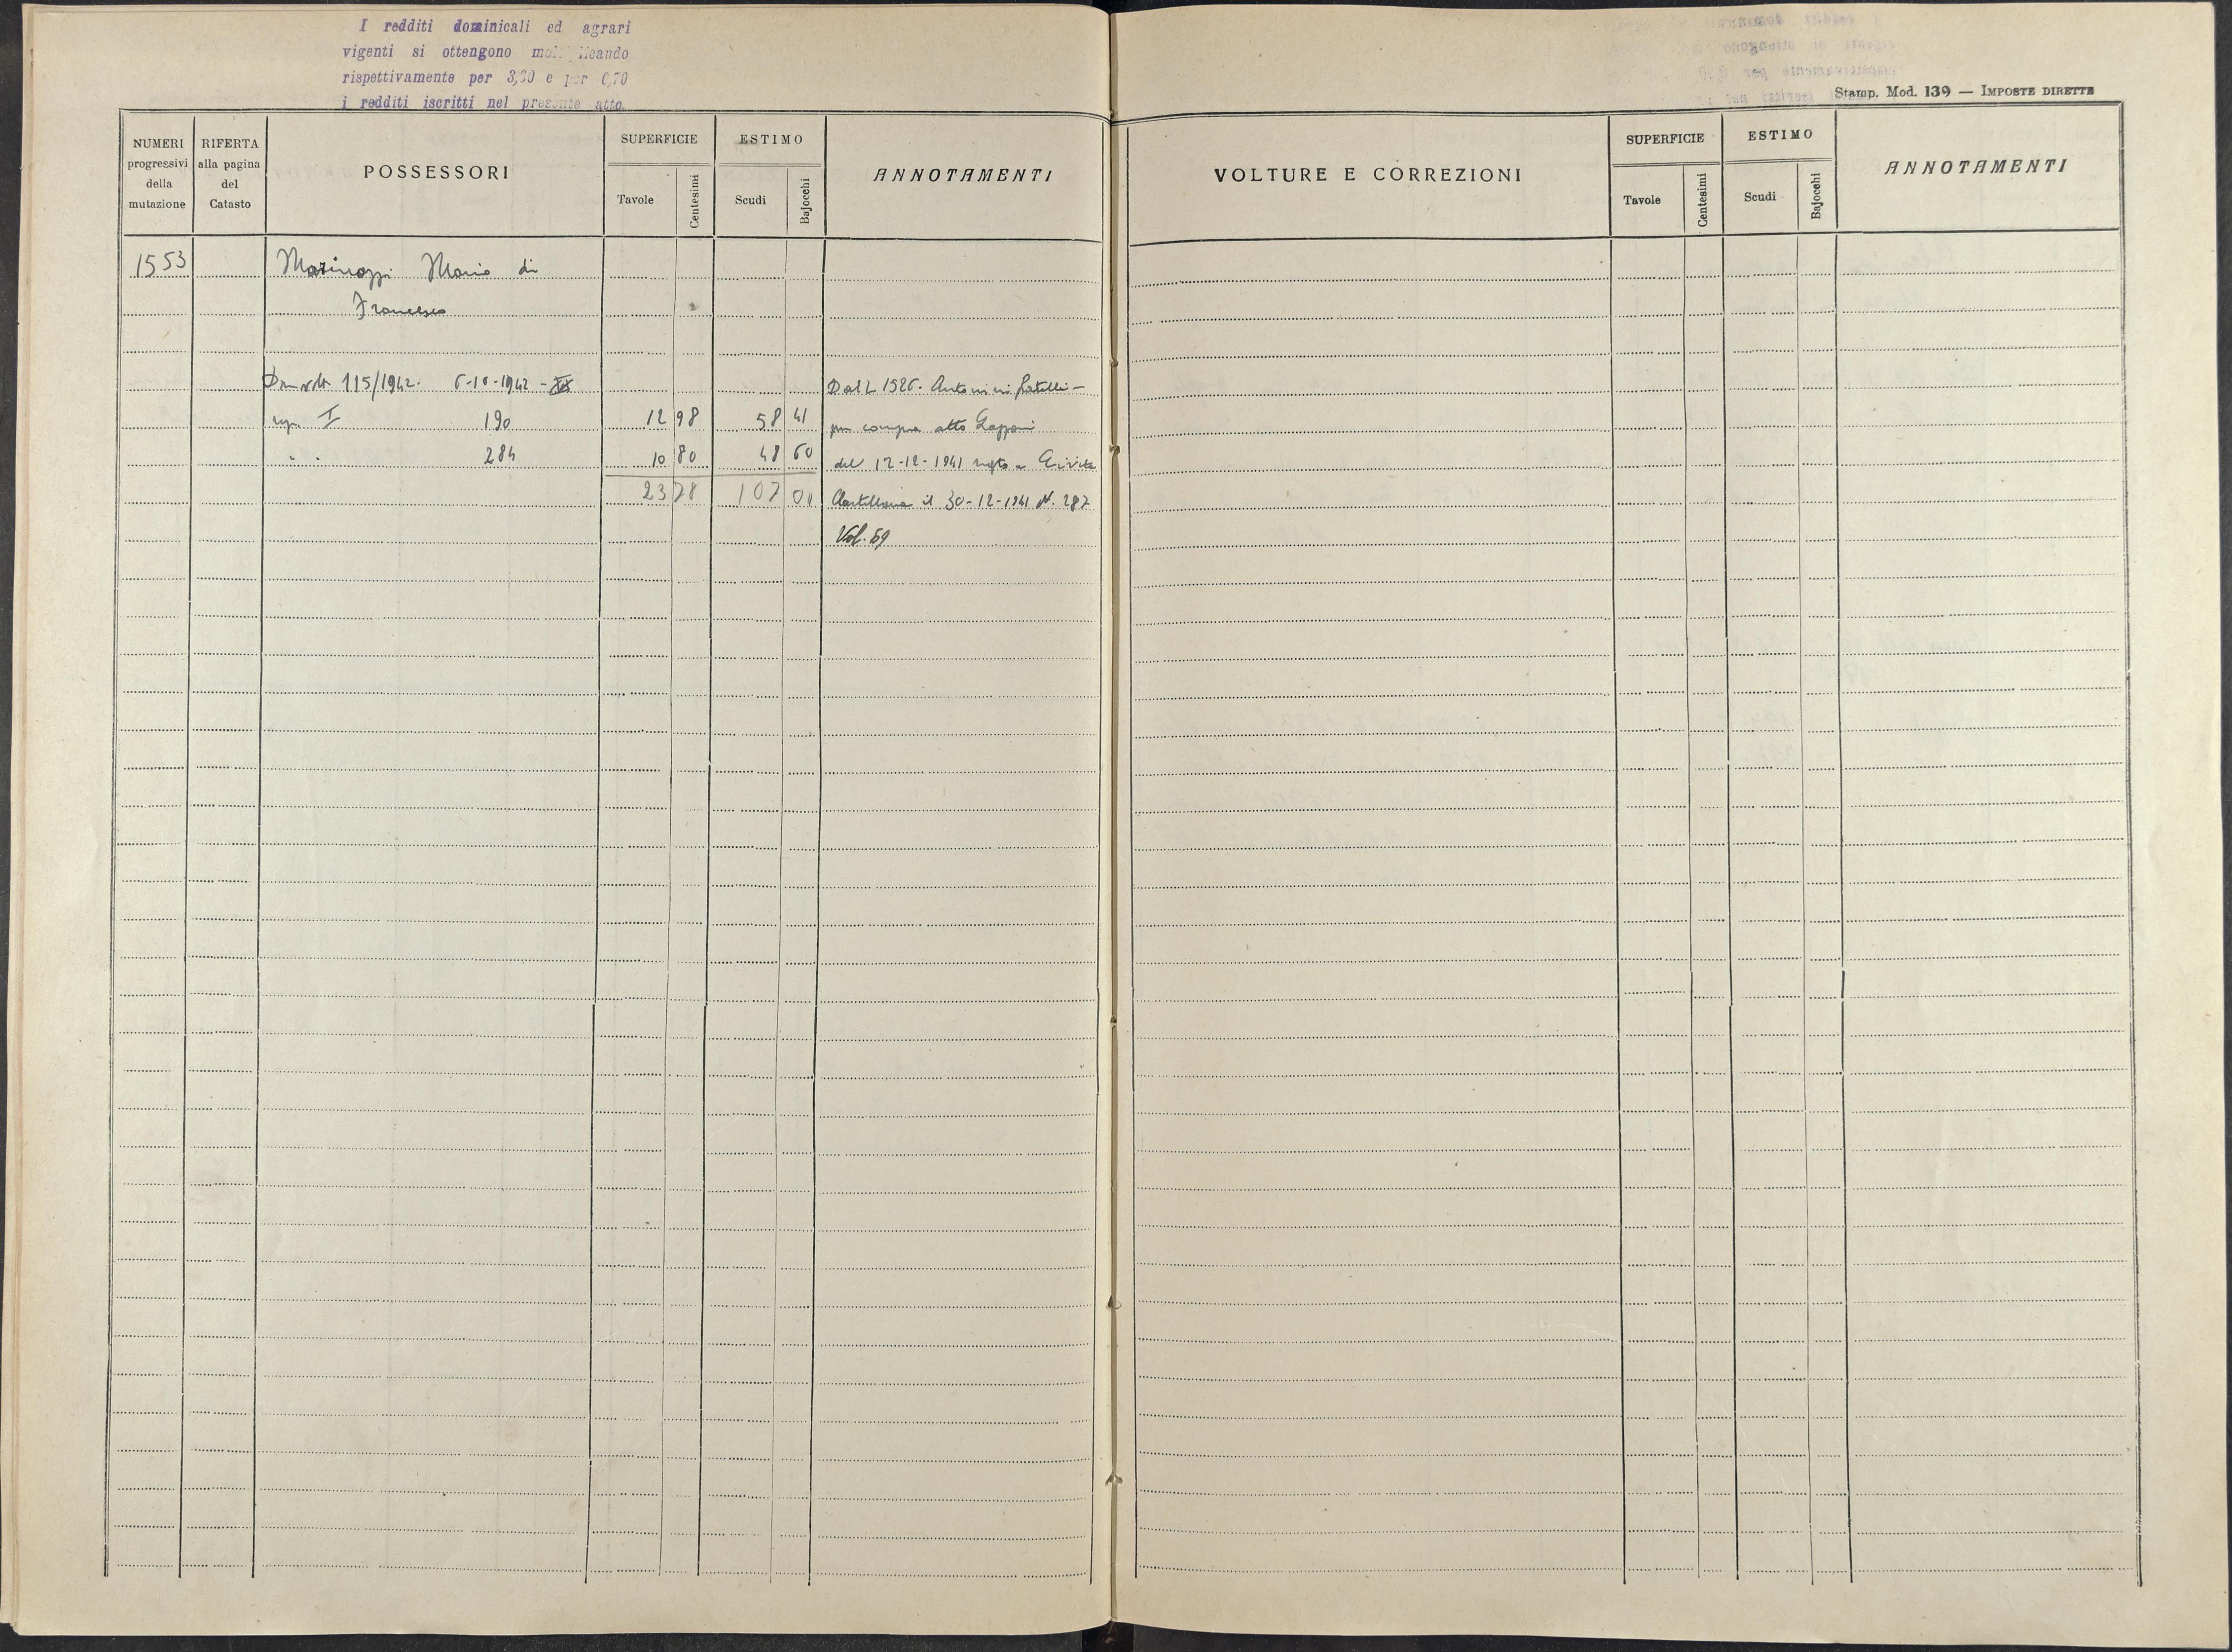 I redditi dominicali ed agrari
vigenti si ottengono
rispettivamente per 3,30 e per 0,70
i redditi iscritti nel presente atto.
Stamp. Mod. 139 — IMPOSTE DIRETTE
NUMERI progressivi della mutazione
RIFERTA alla pagina del Catasto
POSSESSORI
SUPERFICIE
Tavole
Centesimi
ESTIMO
Scudi
Bajocchi
ANNOTAMENTI
VOLTURE E CORREZIONI
SUPERFICIE
Tavole
Centesimi
ESTIMO
Scudi
Bajocchi
ANNOTAMENTI
1553 Marinozzi Mario di
Francesco
115/1942
Antonini fratelli —
I 190 12 98 58 41 compra atto
284 10 80 48 60 del 12-12-1941 a Civita
23 78 107 01 Castellana il 30-12-1941 N. 287
Vol. 69